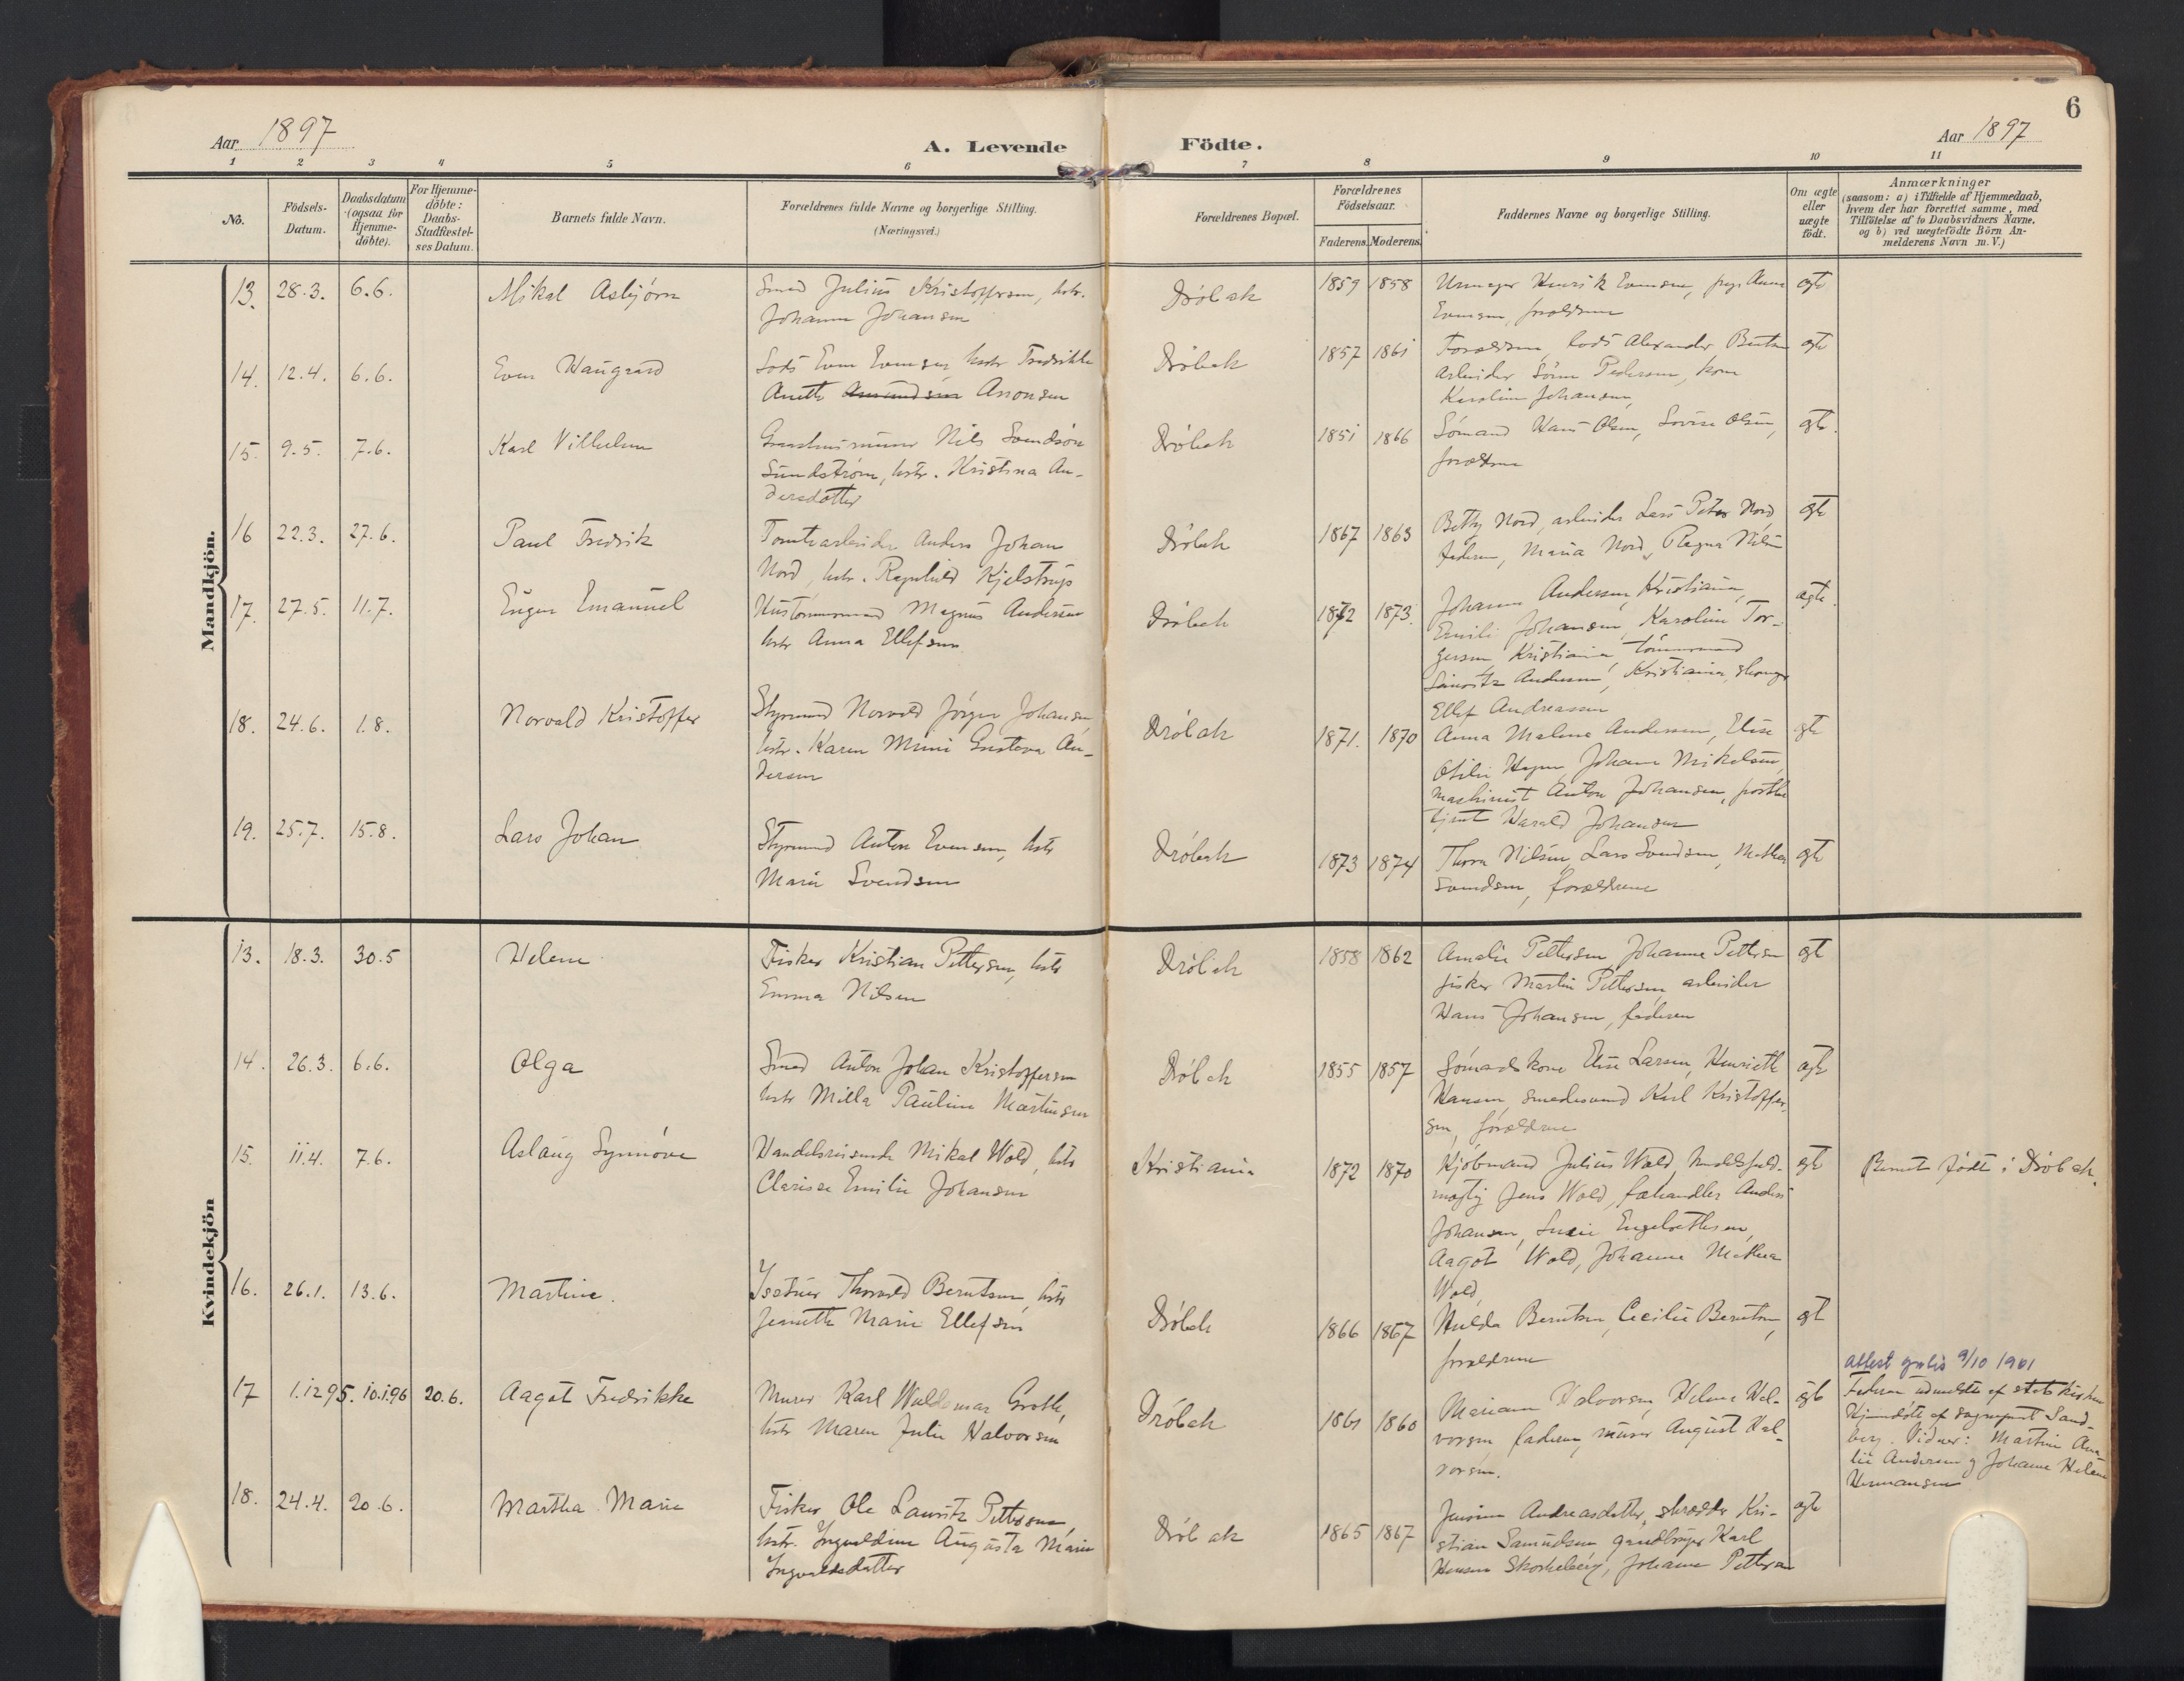 6
Aar 1897
A. Levende Födte.
Aar 1897
1 2 3 4 5 6 7 8 9 10 11
Nó.
Födsels-Datum.
Daabsdatum (ogsaa for Hjemme-döbte).
For Hjemme-döbte: Daabs-Stadfæstel-ses Datum.
Barnets fulde Navn.
Forældrenes fulde Navne og borgerlige Stilling.
(Næringsvei.)
Forældrenes Bopæl.
Forældrenes Födselsaar.
Faderens. Moderens.
Faddernes Navne og borgerlige Stilling.
Om ægte eller uægte födt.
Anmærkninger
(saasom: a) i Tilfælde af Hjemmedaab,
hvem der har forrettet samme, med
Tilföielse af to Daabsvidners Navne.
og b) ved uægtefödte Börn An-
melderens Navn m. V.)
Mandkjön.
13. 28.3. 6.6. Mikal Asbjörn
Smed Julius Kristoffersen, hstr.
Johanne Johansen
Dröbak 1859 1858
Urmager Henrik Evensen, Anna
Evensen, forældrene
ægte
14. 12.4. 6.6. Even Haugaard
Lods Even Evensen hstr Fredrikke
Anette Amundsen Aronsen
Dröbak 1857 1861
Forældrene, lods Alexander Berntsen
arbeider Sören Pedersen, kone
Karoline Johansen,
ægte
15. 9.5. 7.6. Karl Vilhelm
Nils Svendsön
Sundström, hstr. Kristina An-
dersdotter
Dröbak 1851 1866
Sömand Hans Olsen, Lovise Olsen,
forældrene
ægte.
16 22.3. 27.6. Paul Fredrik
Tomtearbeider Anders Johan
Nord, hstr. Ragnhild Kjelstrup
Dröbak 1867 1863
Betty Nord, arbeider Lars Peter Nord
faderen, Maria Nord, Ragna Nilsen
ægte
17. 27.5. 11.7. Eugen Emanuel
Hustömmermand Magnus Andersen
hstr Anna Ellefsen
Dröbak 1872 1873.
Johanne Andersen, Kristiania,
Emilie Johansen, Karoline Tor-
gersen, Kristiania, tömmermand
Lauritz Andersen, Kristiania,
Ellef Andreassen
ægte.
18. 24.6. 1.8. Norvald Kristoffer
Styrmand Norvald Jörgen Johansen
hstr. Karen Mimi Gustava An-
dersen
Dröbak 1871. 1870
Anna Malene Andersen, Elise
Otilie Johanne Mikelsen,
maskinist Anton Johansen,
Harald Johansen
ægte
19. 25.7. 15.8. Lars Johan
Styrmand Anton Evensen, hstr
Marie Svendsen
Dröbak 1873 1874
Thora Nilsen, Lars Svendsen, Mathea
Svendsen, forældrene
ægte
Kvindekjön
13. 18.3. 30.5 Helene
Fisker Kristian Pettersen, hstr
Emma Nilsen
Dröbak 1858 1862
Amalie Pettersen, Johanne Pettersen
fisker Martin Pettersen, arbeider
Hans Johansen, faderen
ægte
14. 26.3. 6.6. Olga
Smed Anton Johan Kristoffersen
hstr Milla Pauline Martinsen
Dröbak 1855 1857
Sömandskone Elise Larsen, Henriette
Hansen, smedesvend Karl Kristoffer-
sen, forældrene
ægte
15. 11.4. 7.6. Aslaug Synnöve
Handelsreisende Mikal Wold, hstr
Clarisse Emilie Johansen
Kristiania 1872 1870
Kjöbmand Julius Wold, handelsfuld-
mægtig Jens Wold, fæhandler Anders
Johansen, Engebrethsen,
Aagot Wold, Johanne Mathea
Wold
ægte
Barnet födt i Dröbak.
16. 26.1. 13.6. Martine.
Thorvald Berntsen, hstr
Jeanette Marie Ellefsen
Dröbak 1866 1867
Hulda Berntsen, Cecilie Berntsen,
forældrene
ægte
17 1.12 95. 10.1.96 20.6. Aagot Fredrikke
Murer Karl Waldemar Groth,
hstr Maren Julie Halvorsen
Dröbak 1861 1860
Mariann Halvorsen, Helene Hal-
vorsen, faderen, murer August Hal-
vorsen.
ægte
Attest gratis 9/10 1901
Faderen udmeldt af statskirken
Hjemdöbt af sogneprest Sand-
berg. Vidner: Martine Ama-
lie Andersen og Johanne Helene
Hermansen
18. 24.4. 20.6. Martha Marie
Fisker Ole Lauritz Pettersen
hstr. Ingvaldine Augusta Marie
Ingvaldsdatter
Dröbak 1865 1867
Andreasdatter, skrædder Kri-
stian Samuelsen, gaardbruger Karl
Hansen Skorkeberg, Johanne Pettersen
ægte